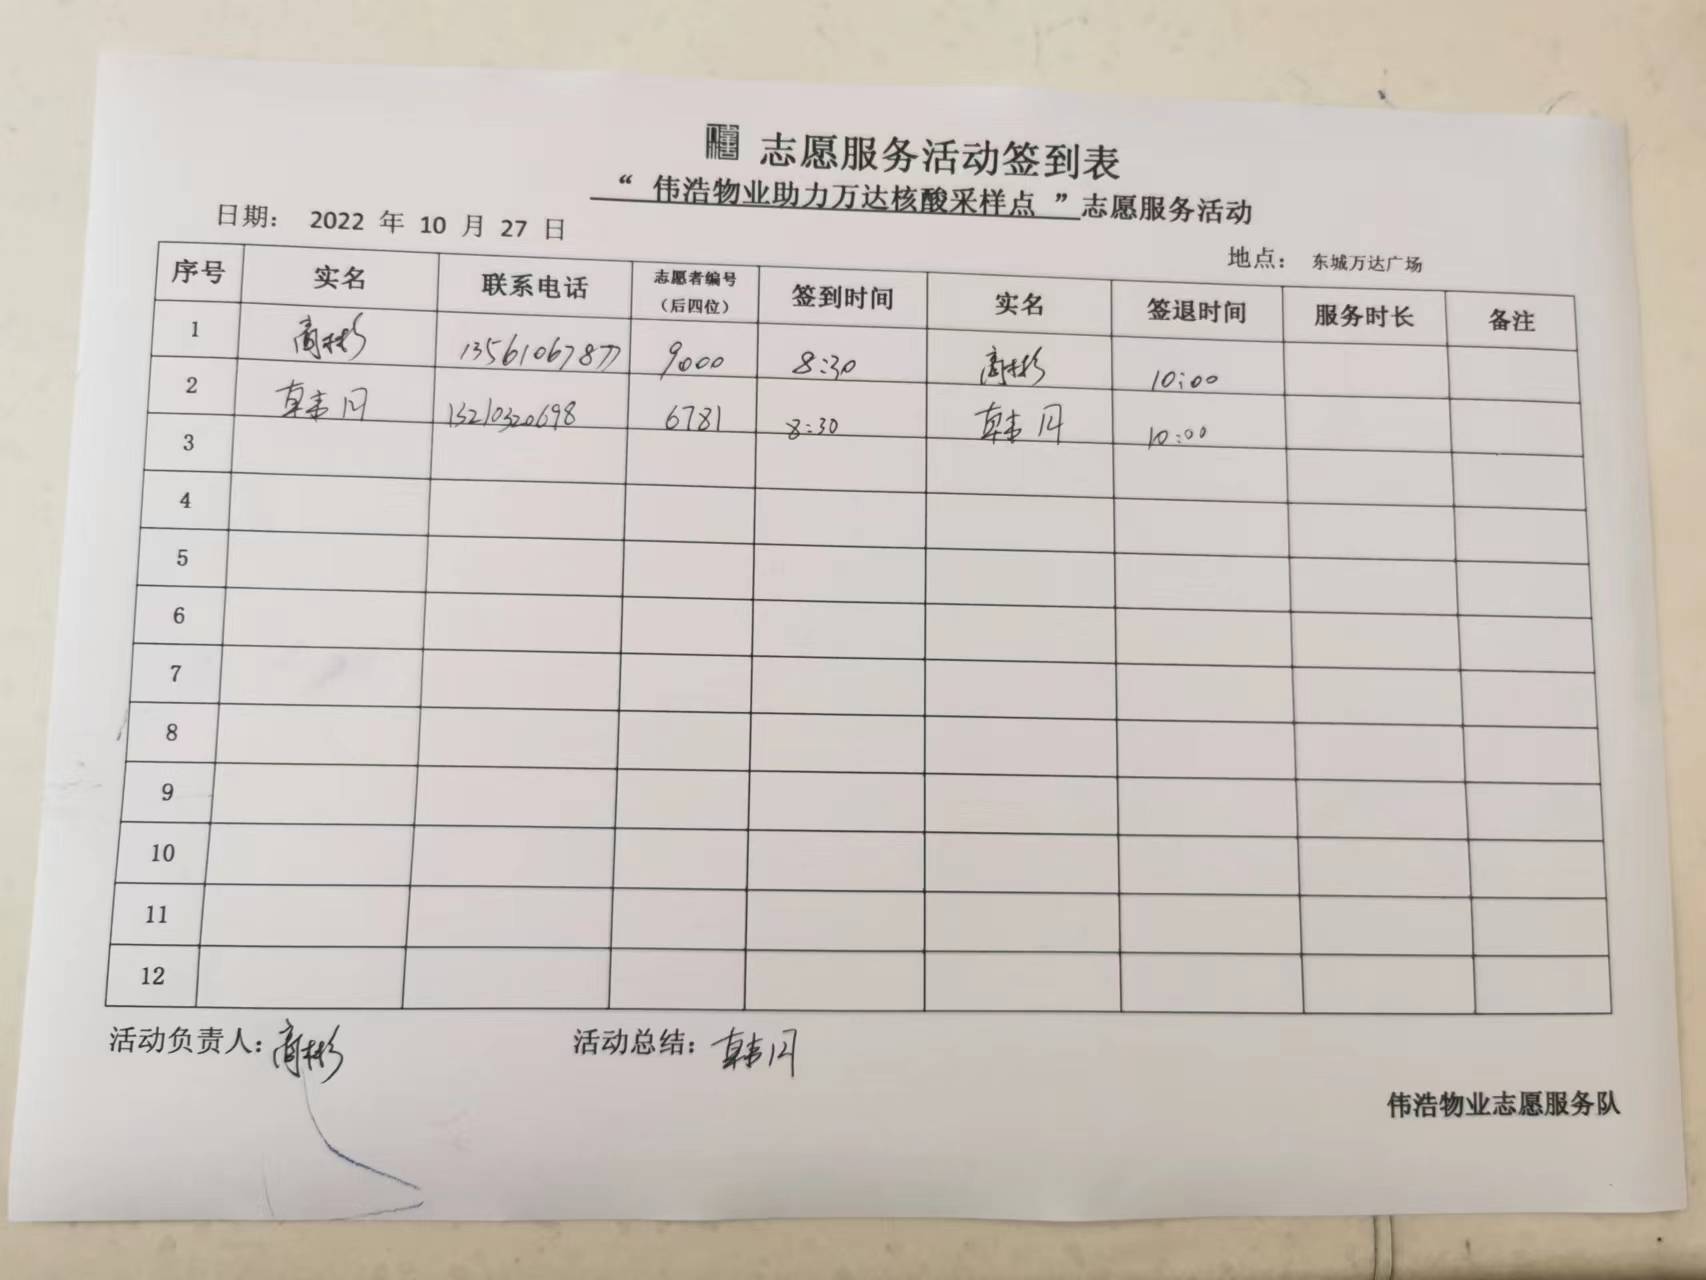 志愿服务活动签到表
“ 伟浩物业助力万达核酸采样点 ”志愿服务活动
日期： 2022 年 10 月 27 日
地点： 东城万达广场
序号 实名 联系电话 志愿者编号（后四位） 签到时间 实名 签退时间 服务时长 备注
1 高彬 13561067877 9000 8:30 高彬 10:00
2 韩月 13210320698 6781 8:30 韩月 10:00
3
4
5
6
7
8
9
10
11
12
活动负责人：高彬 活动总结：韩月
伟浩物业志愿服务队